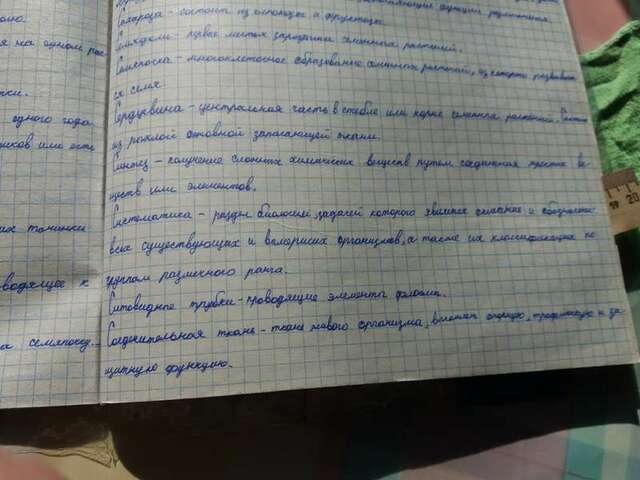 функции
Сахароза - состоит из глюкозы и фруктозы.
Семядоли - первые листья зародыша семенных растений.
Семяпочка - многоклеточное образование семенных растений, из которого
ся семя.
Сердцевина - центральная часть в стебле или корне
из рыхлой основной запасающей ткани.
Синтез - получение сложных химических веществ путем соединения простых ве-
ществ или элементов.
Систематика - раздел биологии, задачей которого является описание и
всех существующих и вымерших организмов, а также их классификация по
группам различного ранга.
Ситовидные трубки - проводящие элементы флоэмы.
Соединительная ткань - ткань живого организма, опорную, трофическую и за-
щитную функцию.
на одном рас
одного года
или
водящее к
семяпочку.
20